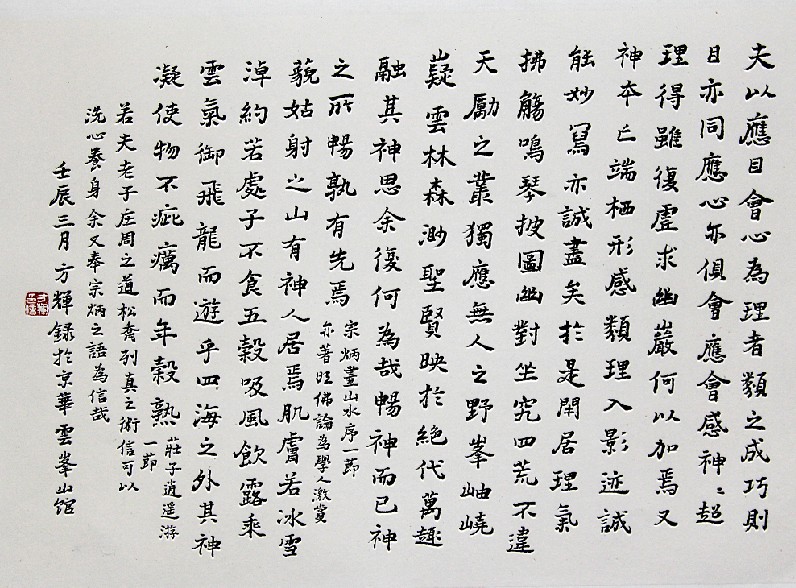 夫以應目會心為理者類之成巧則
目亦同應心亦俱會應會感神〻超
理得雖復虛求幽巖何以加焉又
神本亡端栖形感類理入影迹誠
能妙寫亦誠盡矣於是閑居理氣
拂觴鳴琴披圖幽對坐究四荒不違
天勵之藂獨應無人之野峯岫嶢
嶷雲林森渺聖賢映於絕代萬趣
融其神思余復何為哉暢神而已神
之所暢孰有先焉
宗炳畫山水序一節
亦著明佛論為學人激賞
藐姑射之山有神人居焉肌膚若冰雪
淖約若處子不食五穀吸風飲露乘
雲氣御飛龍而遊乎四海之外其神
凝使物不疵癘而年穀熟
莊子逍遥游
一節
若夫老子庄周之道松喬列真之術信可以
洗心養身余又奉宗炳之語為信哉
壬辰三月方輝錄於京華雲峯山館